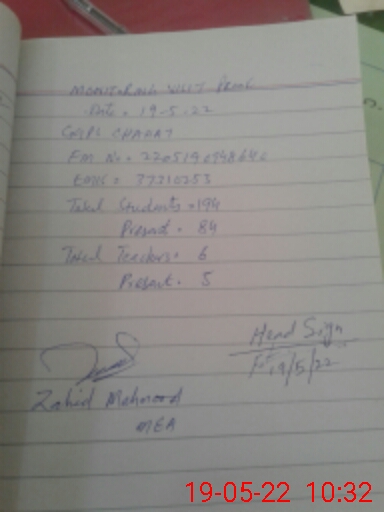 MONITORING VISIT PROOF
Date = 19-5-22
GGPS CHARAT
EM No = 
EMIS = 37310253
Total Students = 194
Present = 84
Total Teachers = 6
Present = 5
Head Sign
19/5/22
Zahid Mehmood
MEA
19-05-22 10:32